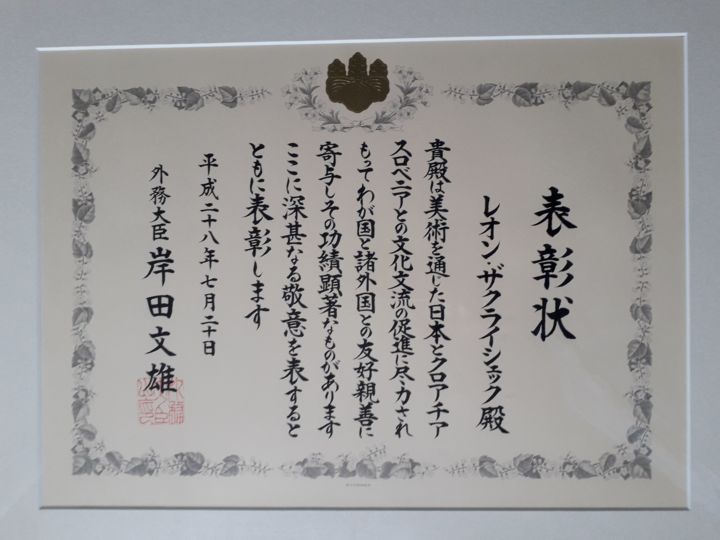 表彰状
レオン・ザクライシェック殿
貴殿は美術を通じた日本とクロアチア
スロベニアとの文化交流の促進に尽力され
もってわが国と諸外国との友好親善に
寄与しその功績顕著なものがあります
ここに深甚なる敬意を表すると
ともに表彰します
平成二十八年七月二十日
外務大臣 岸田文雄